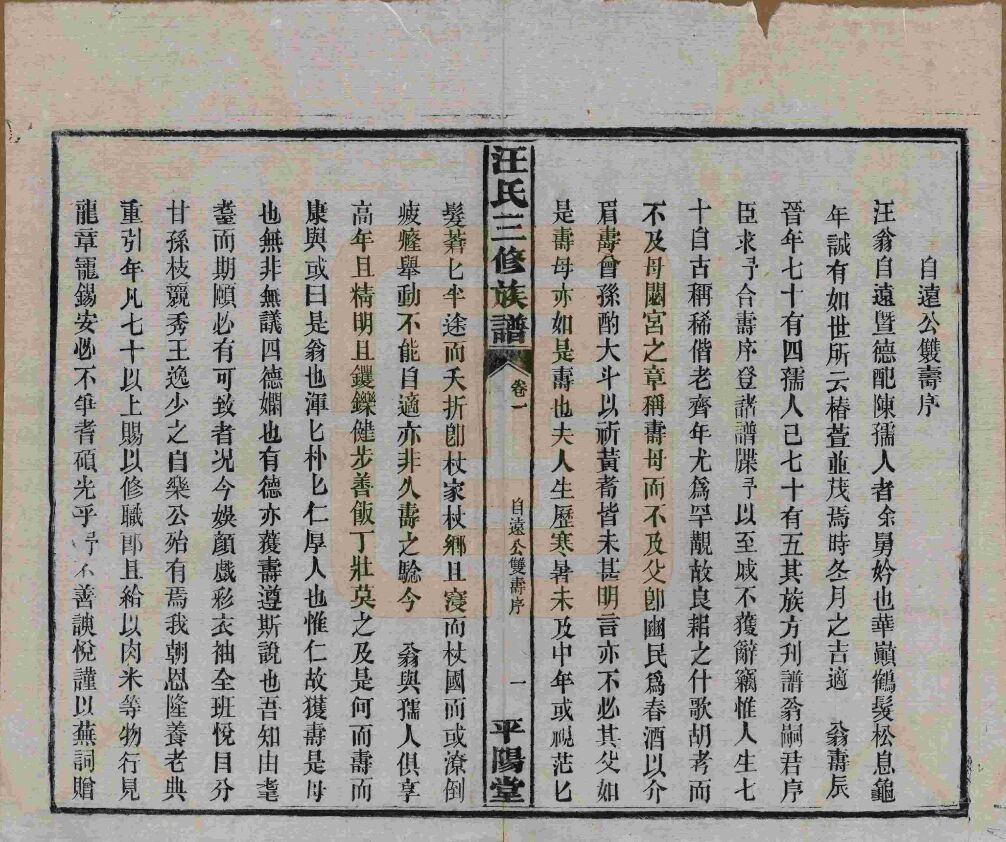 自遠公雙壽序
汪翁自遠暨德配陳孺人者余舅妗也華巔鶴髮松息龜
年誠有如世所云椿萱並茂焉時冬月之吉適　翁壽辰
晉年七十有四孺人已七十有五其族方刊譜翁嗣君序
臣求予合壽序登諸譜牒予以至戚不獲辭竊惟人生七
十自古稱稀偕老齊年尤爲罕覯故良耜之什歌胡考而
不及母閟宮之章稱壽母而不及父卽豳民爲春酒以介
眉壽曾孫酌大斗以祈黃耇皆未甚明言亦不必其父如
是壽母亦如是壽也夫人生歷寒暑未及中年或視茫匕
髮蒼匕半途而夭折卽杖家杖鄉且寖而杖國而或潦倒
疲癃舉動不能自適亦非久壽之騐今　翁與孺人俱享
高年且精明且鑁鑠健步善飯丁壯莫之及是何而壽而
康與或曰是翁也渾匕朴匕仁厚人也惟仁故獲壽是母
也無非無議四德嫻也有德亦獲壽遵斯說也吾知由耄
耋而期頤必有可致者况今娛顏戲彩衣袖全班悅目分
甘孫枝競秀王逸少之自樂公殆有焉我朝恩隆養老典
重引年凡七十以上賜以修職郎且給以肉米等物行見
龍章寵錫安必不爭耆碩光乎予不善諛悅謹以蕪詞贈
汪氏三修族譜
卷一
自遠公雙壽序
一
平陽堂